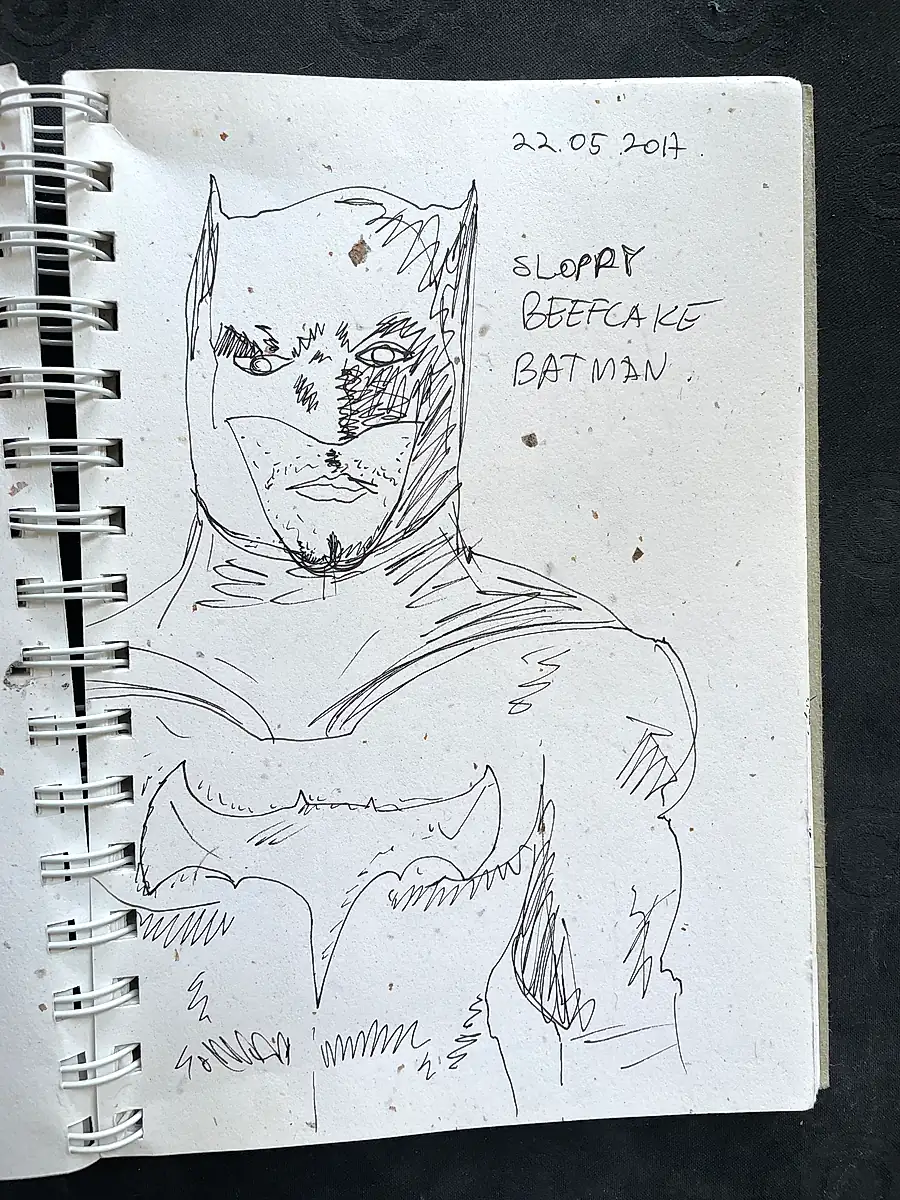 22.05.2017.
SLOPPY
BEEFCAKE
BATMAN.